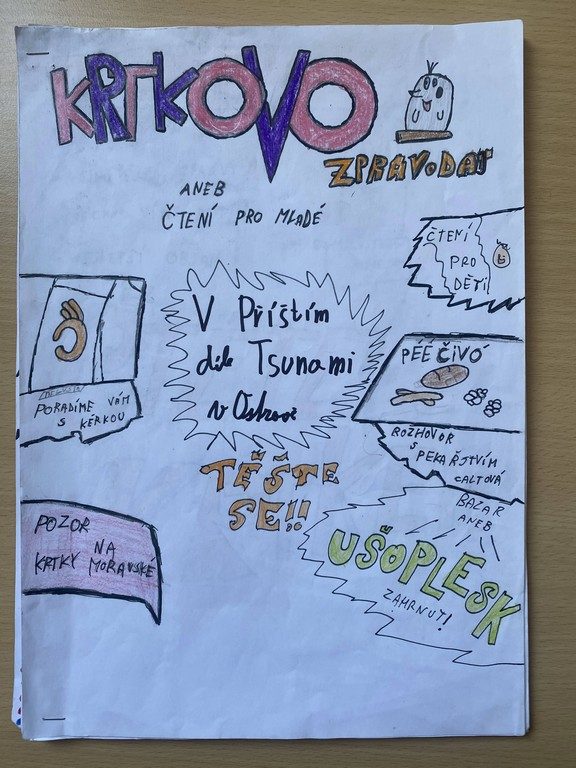 KRTKOVO
ZPRAVODAJ
ANEB
ČTENÍ PRO MLADÉ
ČTENÍ
PRO
DĚTI
V Příštím
díle Tsunami
v Ostravě
TĚŠTE
SE!!
PORADÍME VÁM
S KÉRKOU
PÉÉČIVO
ROZHOVOR
S
PEKAŘJTVÍM
CALTOVÁ
POZOR
NA
KRTKY MORAVSKÉ
BAZAR
ANEB
UŠOPLESK
ZAHRNUT!